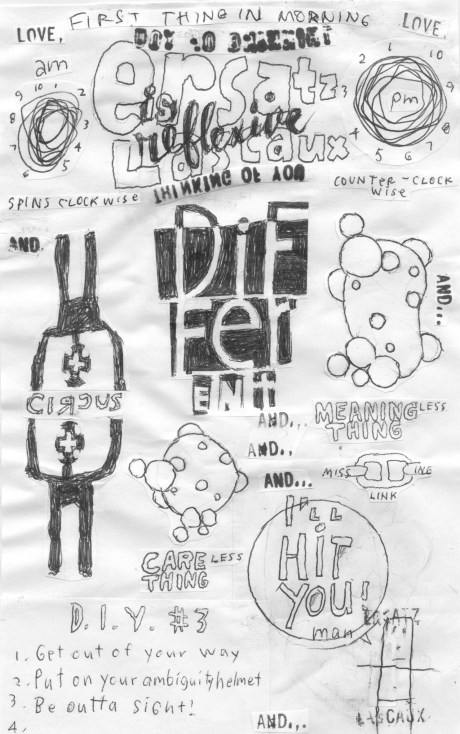 FIRST THING IN MORNING
LOVE,
LOVE,
am
ersatz
3
is
reflexive
Lascaux
THINKING OF YOU
pm
10 1 2
9
8 3
7 4
6 5
1
2 10
3 9
4 8
5 6 7
SPINS CLOCKWISE
COUNTER-CLOCK
WISE
AND.
DiF
Fer
ENT
AND...
CIRCUS
AND...
AND..
AND...
MEANINGLESS
THING
MISS ING
LINK
CARELESS
THING
I'LL
HIT
YOU!
man
D.I.Y. #3
1. Get out of your way
2. Put on your ambiguity helmet
3. Be outta sight!
4.
ERSATZ
LASCAUX
AND...